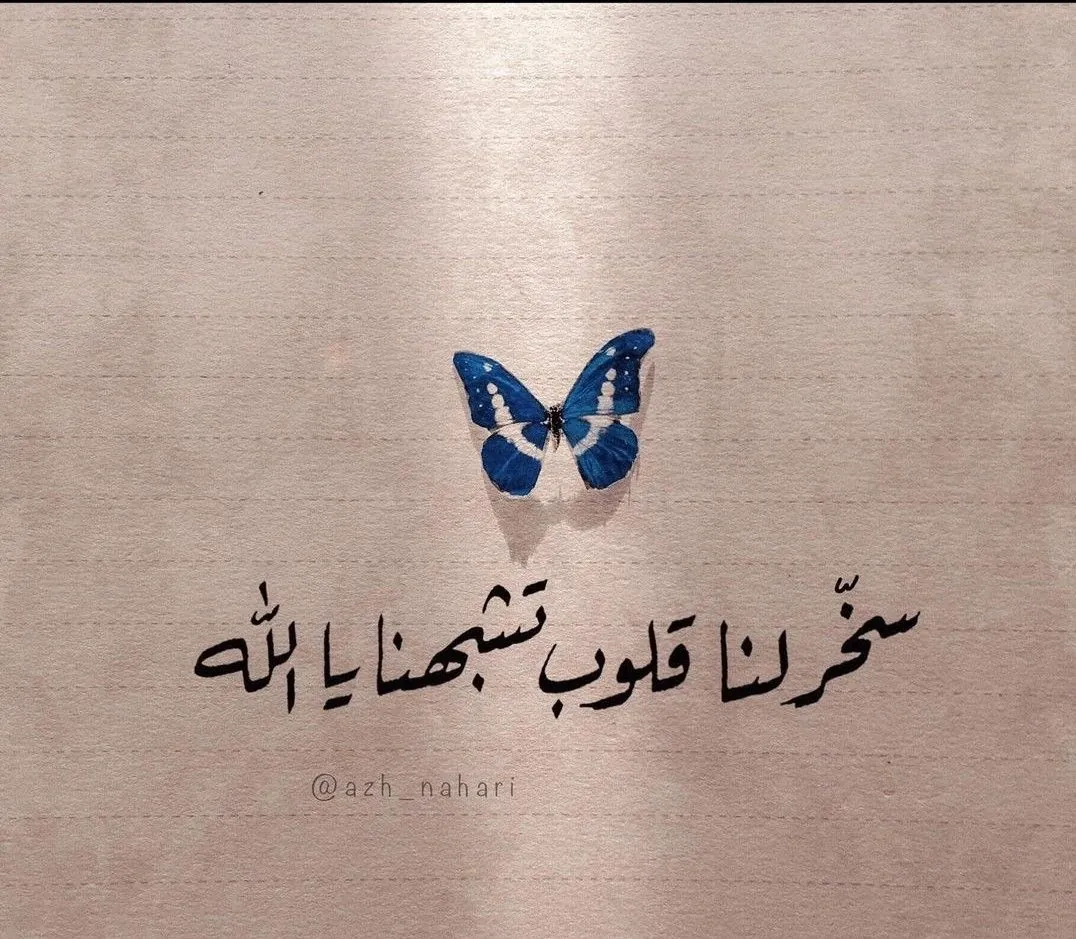 سخّر لنا قلوب تشبهنا يا اللّٰه
@azh_nahari